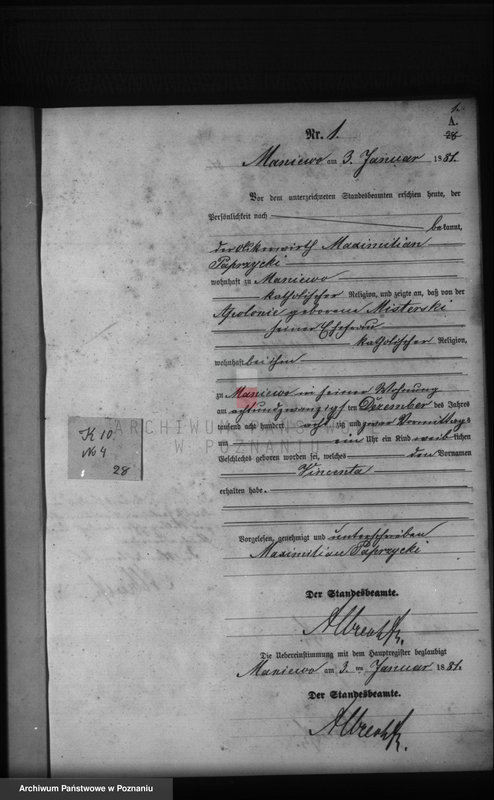 1.
A.
28
Nr. 1.
Maniewo am 3. Januar 1881.
Vor dem unterzeichneten Standesbeamten erschien heute, der
Persönlichkeit nach
bekannt,
der Ackerwirth Maximilian
Paprzycki
wohnhaft zu Maniewo
katholischer Religion, und zeigte an, daß von der
Apolonie geborene Misterski
seiner Ehefrau
katholischer Religion,
wohnhaft bei ihm
zu Maniewo in seiner Wohnung
am achtundzwanzigsten Dezember des Jahres
tausend acht hundert achtzig und zwar Vormittags
um ein Uhr ein Kind weiblichen
Geschlechts geboren worden sei, welches den Vornamen
Vincenta
erhalten habe.
Vorgelesen, genehmigt und unterschrieben
Maximilian Paprzycki
Der Standesbeamte.
Albrecht
Die Uebereinstimmung mit dem Hauptregister beglaubigt
Maniewo am 3. ten Januar 1881.
Der Standesbeamte.
Albrecht
K 10
No 4
28
ARCHIWUM PAŃSTWOWE
W POZNANIU
Archiwum Państwowe w Poznaniu